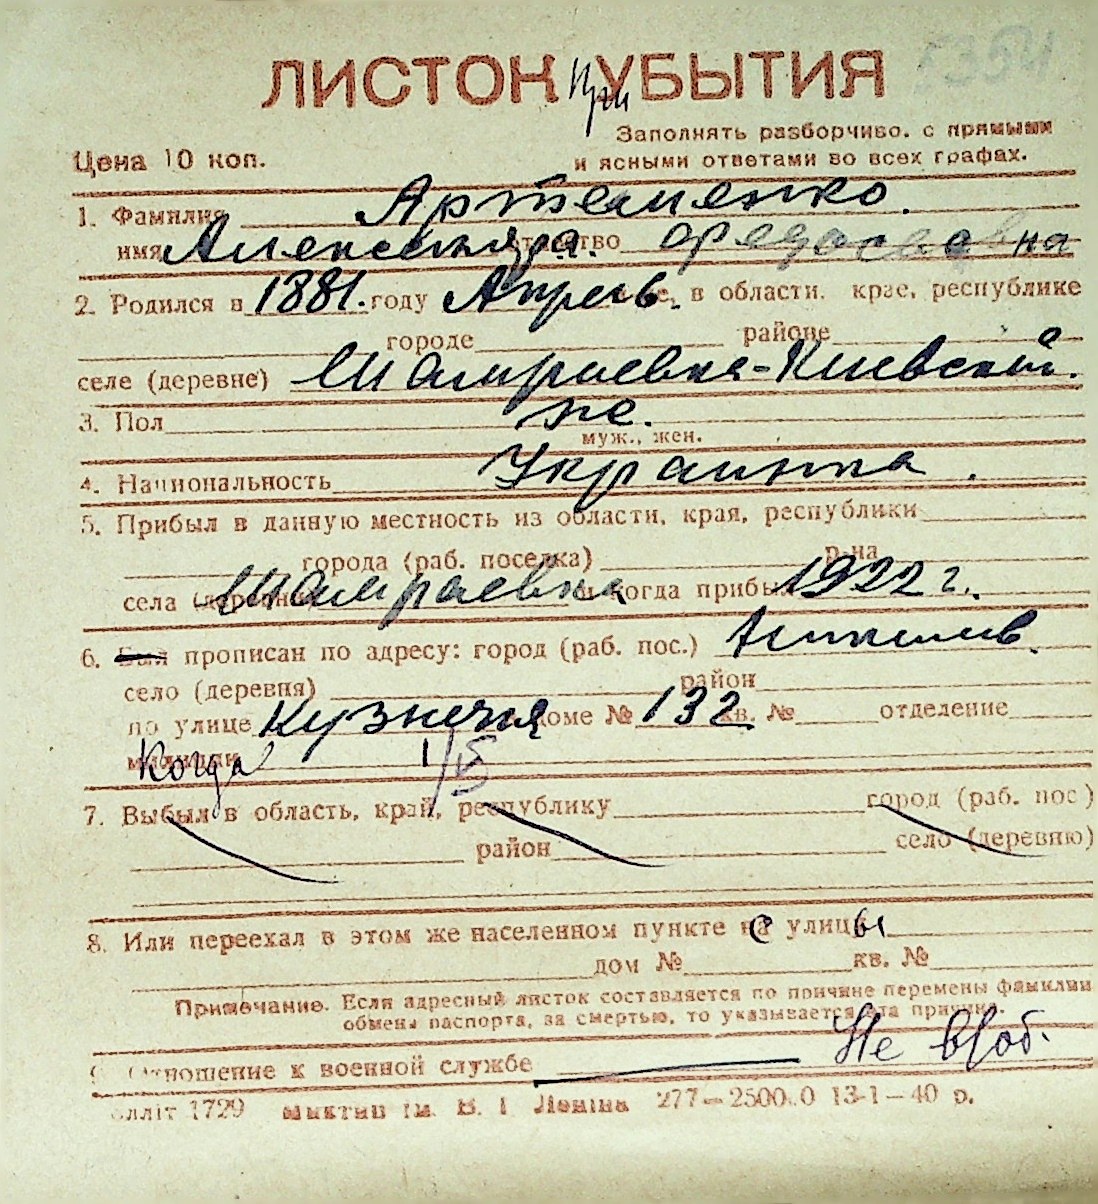 5354
ЛИСТОК При УБЫТИЯ
Цена 10 коп.
Заполнять разборчиво, с прямыми
и ясными ответами во всех графах.
1. Фамилия Артеменко.
имя Александра. отчество Федосеевна
2. Родился в 1881. году Апрель. в области, крае, республике
городе районе
селе (деревне) Шамраевка-Киевской.
3. Пол же.
муж., жен.
4. Национальность Украинка.
5. Прибыл в данную местность из области, края, республики
города (раб. поселка) р-на
села (деревни) Шамраевка и когда прибыл 1922 г.
6. Был прописан по адресу: город (раб. пос.)
село (деревня) район
по улице Кузнечня доме № 132 кв. № отделение
Когда милиции 1/V
7. Выбыл в область, край, республику город (раб. пос)
район село (деревню)
8. Или переехал в этом же населенном пункте с улицы
дом № кв. №
Примечание. Если адресный листок составляется по причине перемены фамилии
обмены паспорта, за смертью, то указывается эта причина.
9. Отношение к военной службе Не в/об.
1729 ім. В. І Леніна 277—2500.0 13-1—40 р.